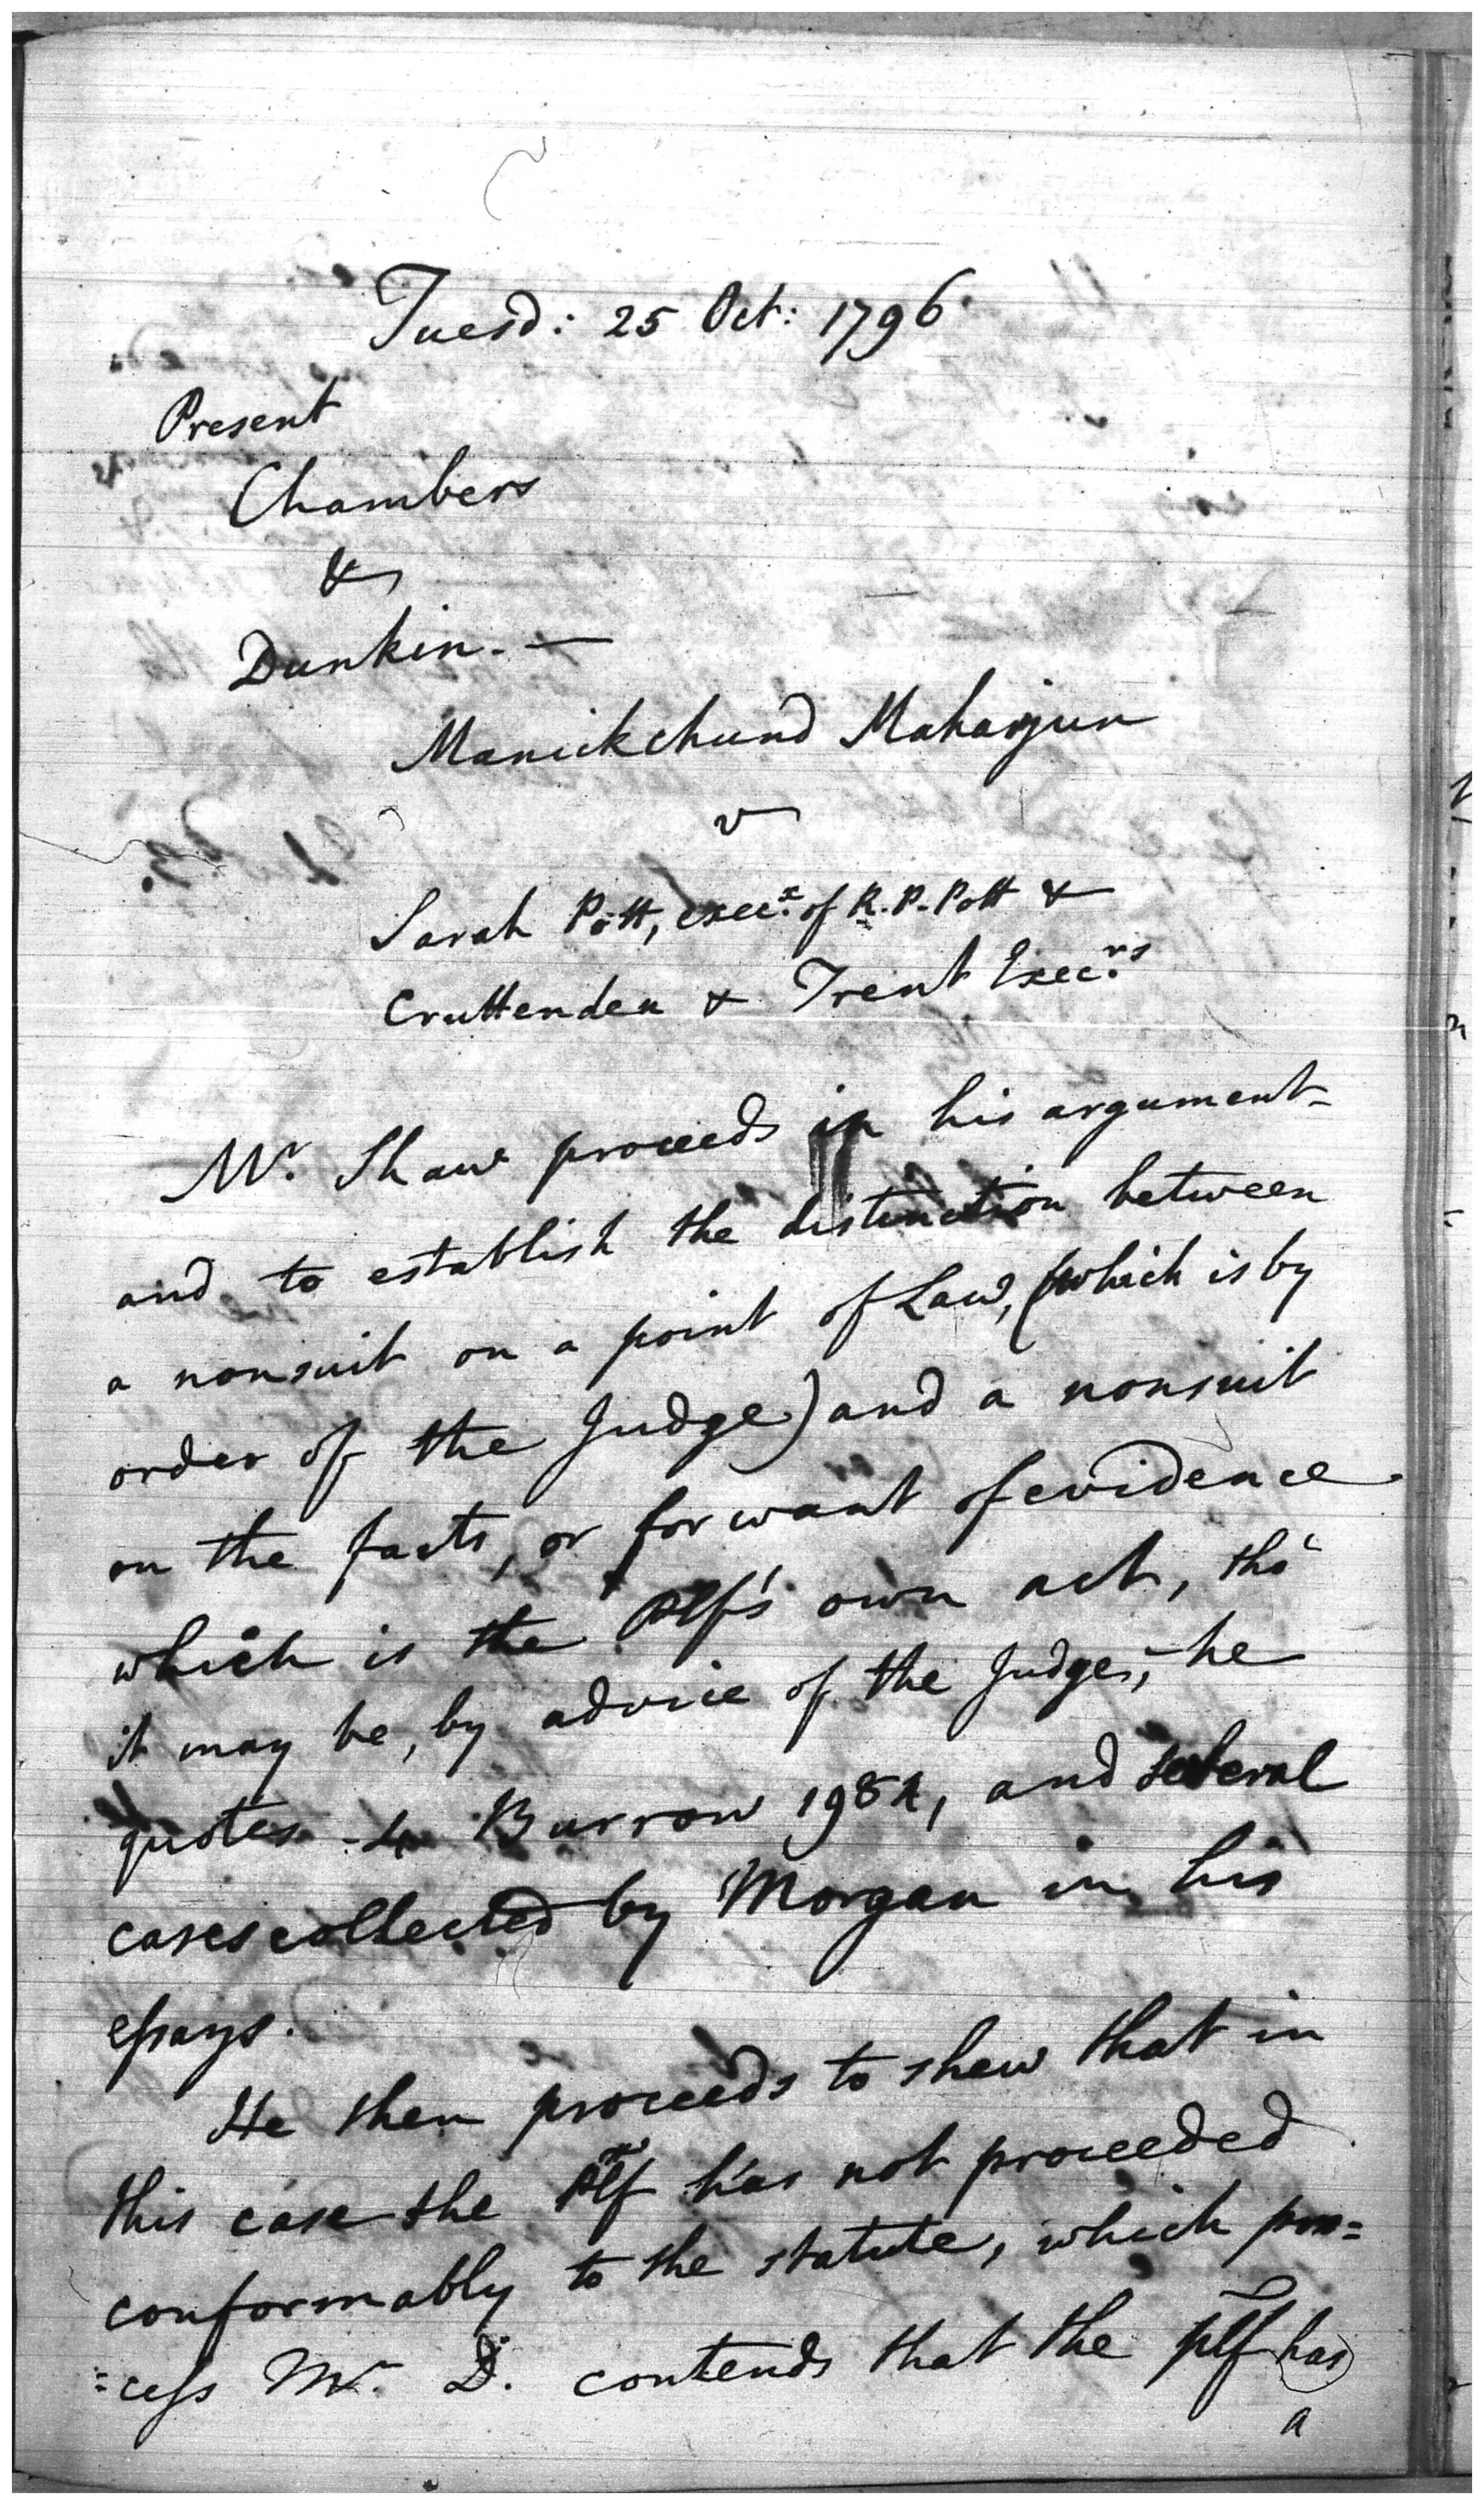 Tuesd: 25 Oct: 1796.
Present
Chambers
&
Dunkin. —
Manickchund Mahajun
v
Sarah Pott, execx. of R. P. Pott &
Cruttenden & Trent Execrs.
Mr. Shaw proceeds in his argument-
and to establish the distinction between
a nonsuit on a point of Law, (which is by
order of the Judge) and a nonsuit
on the facts, or for want of evidence
which is the Plf's own act, tho'
it may be, by advice of the Judge; he
quotes 4 Burrow 1984, and several
cases collected by Morgan in his
essays.
He then proceeds to shew that in
this case the Plf has not proceeded
conformably to the statute, which pro=
=cess Mr. D. contends that the plf has
a